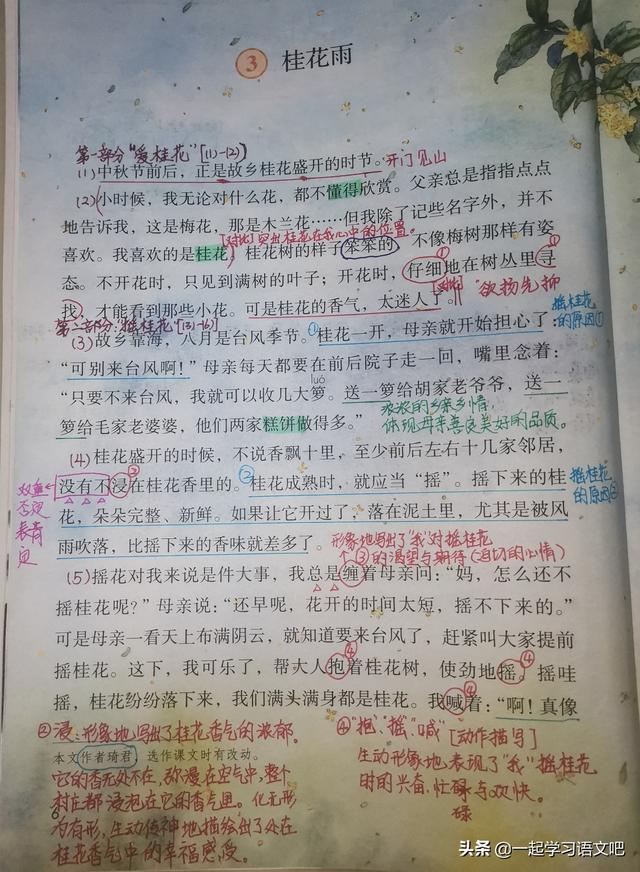 3 桂花雨
第一部分“爱桂花”[(1)-(2)]
(1)中秋节前后，正是故乡桂花盛开的时节。开门见山
(2)小时候，我无论对什么花，都不懂得欣赏。父亲总是指指点点
地告诉我，这是梅花，那是木兰花……但我除了记些名字外，并不
[对比]突出桂花在我心中的位置。
喜欢。我喜欢的是桂花。桂花树的样子笨笨的，不像梅树那样有姿
态。不开花时，只见到满树的叶子；开花时，仔细地在树丛里寻
①
①
找，才能看到那些小花。可是桂花的香气，太迷人了。
欲扬先抑
第二部分：摇桂花[(3)-(6)]
摇桂花的原因①
(3)故乡靠海，八月是台风季节。①桂花一开，母亲就开始担心了：
“可别来台风啊！”母亲每天都要在前后院子走一回，嘴里念着：
luó
“只要不来台风，我就可以收几大箩。送一箩给胡家老爷爷，送一
箩给毛家老婆婆，他们两家糕饼做得多。”
浓浓的乡亲乡情，
体现母亲善良美好的品质。
(4)桂花盛开的时候，不说香飘十里，至少前后左右十几家邻居，
双重否定表肯定
没有不浸在桂花香里的。②桂花成熟时，就应当“摇”。摇下来的桂
②
摇桂花的原因②
花，朵朵完整、新鲜。如果让它开过了，落在泥土里，尤其是被风
雨吹落，比摇下来的香味就差多了。
形象地写出了“我”对摇桂花
③的渴望与期待(迫切的心情)
(5)摇花对我来说是件大事，我总是缠着母亲问：“妈，怎么还不
摇桂花呢？”母亲说：“还早呢，花开的时间太短，摇不下来的。”
可是母亲一看天上布满阴云，就知道要来台风了，赶紧叫大家提前
摇桂花。这下，我可乐了，帮大人抱着桂花树，使劲地摇。摇哇
④
④
摇，桂花纷纷落下来，我们满头满身都是桂花。我喊着：“啊！真像
④
②浸：形象地写出了桂花香气的浓郁。
本文作者琦君，选作课文时有改动。
它的香无处不在，弥漫在空气中，整个
村庄都浸泡在它的香气里。化无形
为有形，生动传神地描绘出了处在
桂花香气中的幸福感受。
④“抱”“摇”“喊”[动作描写]
生动形象地表现了“我”摇桂花
时的兴奋、忙碌与欢快。
碌
头条 @一起学习语文吧